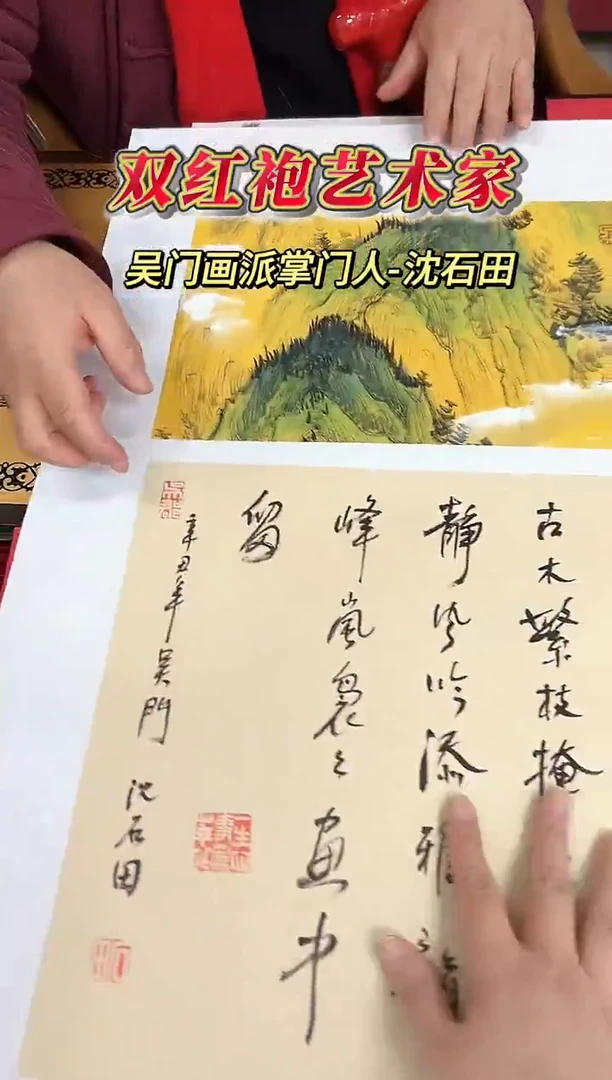 双红袍艺术家
吴门画派掌门人-沈石田
古木繁枝掩
静
风吟添雅
峰嵐裊之画中
留
辛丑年吴門
沈石田